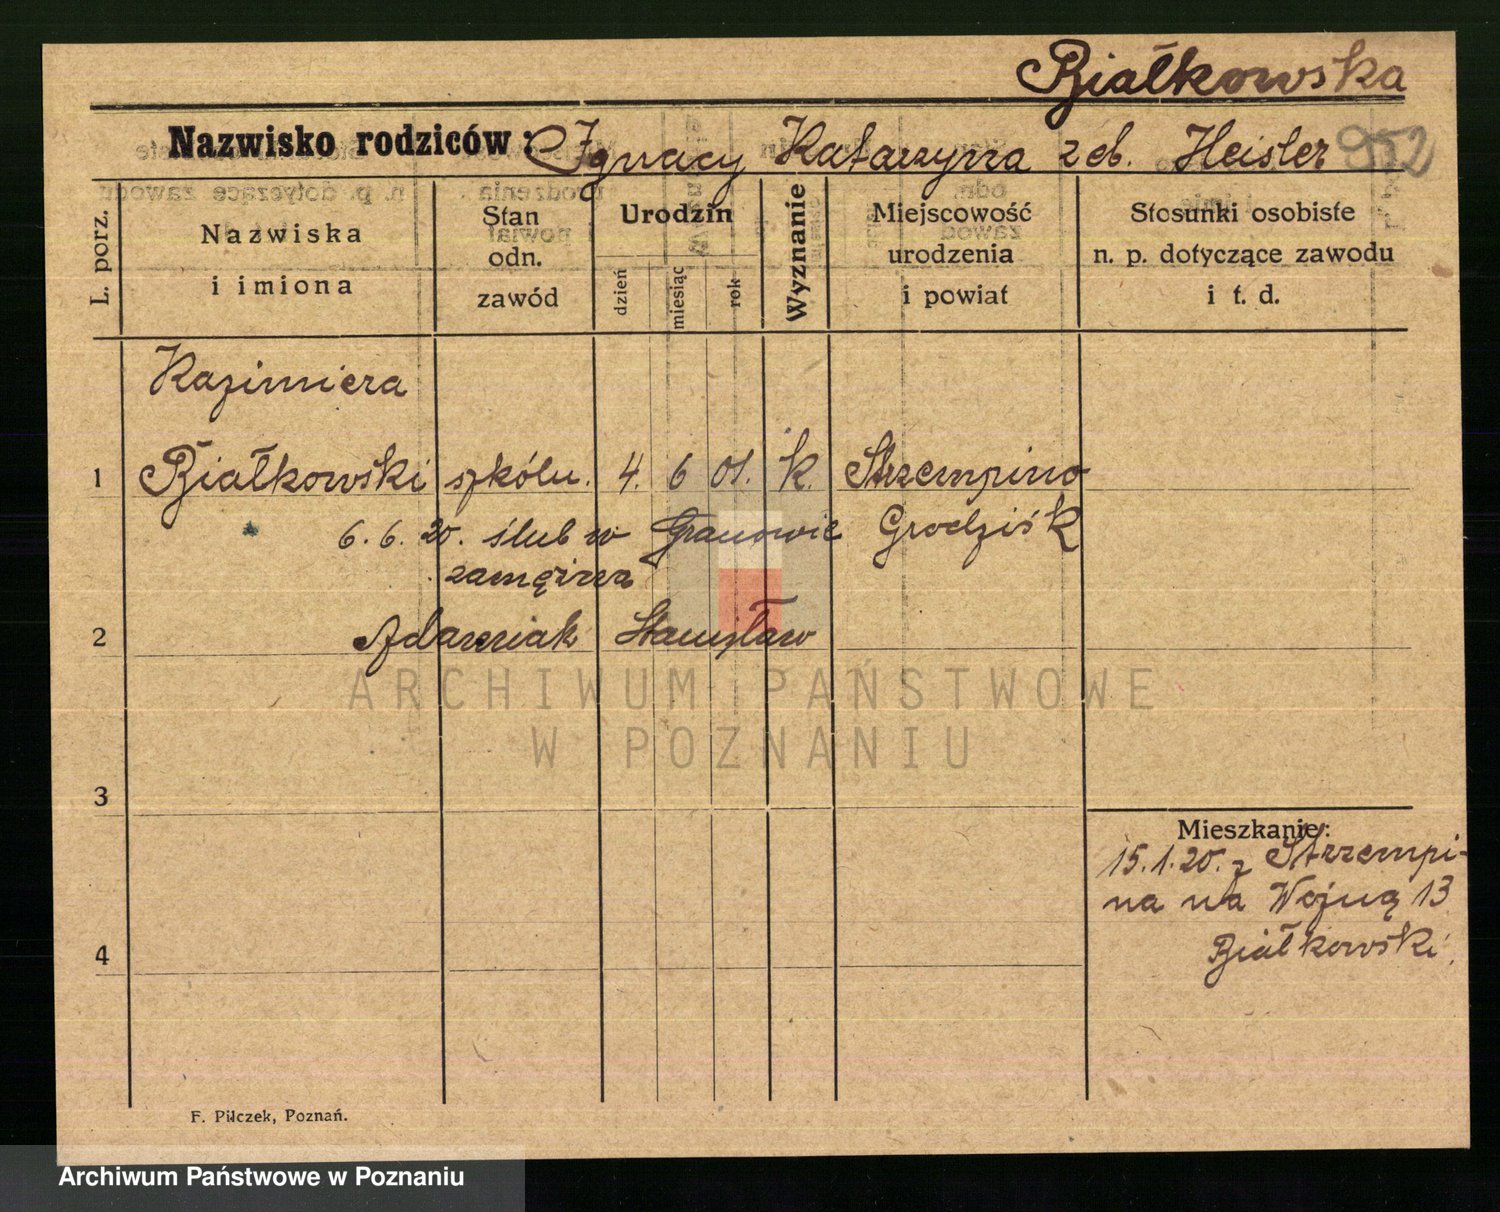 Białkowska
Nazwisko rodziców: Ignacy Katarzyna z d. Heisler 952
L. porz.
Nazwiska
i imiona
Stan
odn.
zawód
Urodzin
dzień
miesiąc
rok
Wyznanie
Miejscowość
urodzenia
i powiat
Stosunki osobiste
n. p. dotyczące zawodu
i t. d.
Kazimiera
1 Białkowski szkóln. 4. 6 01. k. Strzempino
6. 6. 20. ślub w Granowie Grodzisk
zamężna
2 Adamiak Stanisław
ARCHIWUM PAŃSTWOWE
W POZNANIU
3
Mieszkanie:
15.1.20. z Strzempi-
na na Wojną 13
Białkowski.
4
F. Pilczek, Poznań.
Archiwum Państwowe w Poznaniu